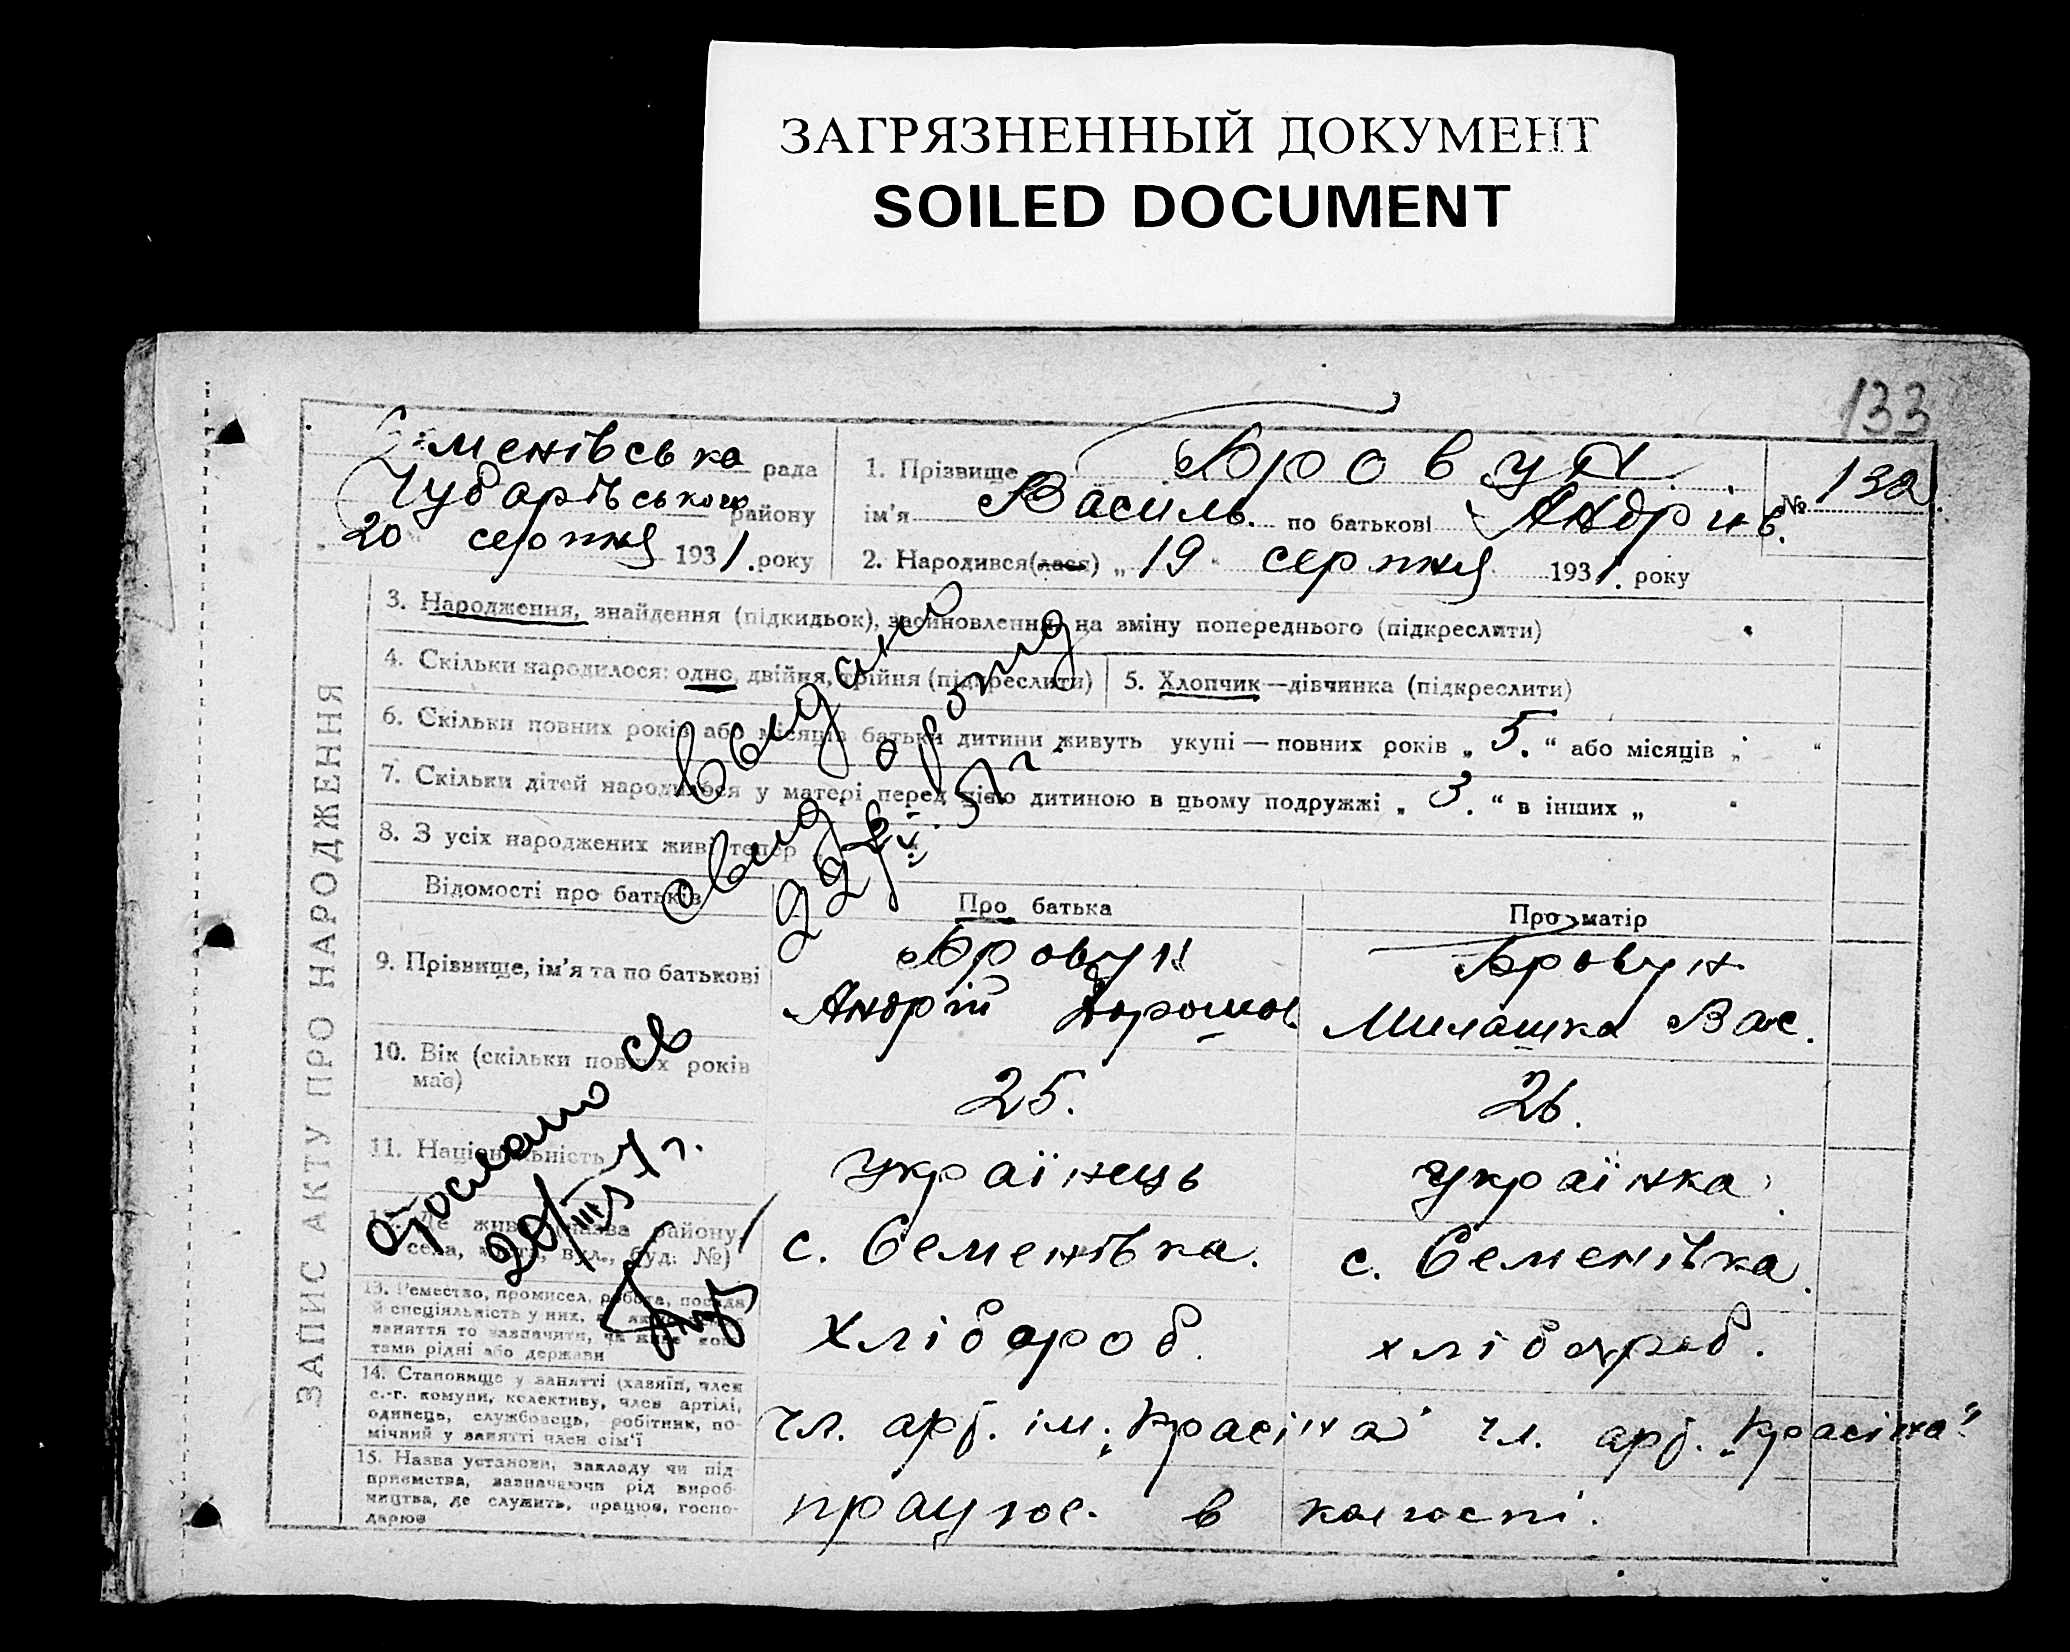 ЗАГРЯЗНЕННЫЙ ДОКУМЕНТ
SOILED DOCUMENT
133
Семенівська рада
Чубарівського району
20 серпня 1931. року
1. Прізвище Бровун
№ 132
ім'я Василь по батькові Андріїв.
2. Народився(лася) „ 19 " серпня 1931. року
ЗАПИС АКТУ ПРО НАРОДЖЕННЯ
3. Народження, знайдення (підкидьок), засиновлення, на зміну попереднього (підкреслити)
4. Скільки народилося: одно, двійня, трійня (підкреслити)
5. Хлопчик—дівчинка (підкреслити)
6. Скільки повних років або місяців батьки дитини живуть укупі — повних років „ 5. “ або місяців „ “
7. Скільки дітей народилося у матері перед цією дитиною в цьому подружжі „ 3. “ в інших „ "
8. З усіх народжених живі тепер „
Відомості про батьків
Про батька
Про матір
9. Прізвище, ім'я та по батькові
Бровун
Андрій Дорошов.
Бровун
Милашка Вас.
10. Вік (скільки повних років має)
25.
26.
11. Національність
українець
українка
12. Де живе (назва району, села, міста, вул., буд. №)
с. Семенівка.
с. Семенівка.
13. Ремество, промисел, робота, посада
й спеціяльність у них,
заняття то зазначити, чи живе кош-
тами рідні або держави
хлібороб.
хлібороб.
14. Становище у занятті (хазяїн, член
с.-г. комуни, колективу, член артілі,
одинець, службовець, робітник, по-
мічний у занятті член сім'ї
чл. арт. ім. „Красіна"
чл. арт. „Красіна"
15. Назва установи, закладу чи під-
приємства, зазначаючи рід вироб-
ництва, де служить, працює, госпо-
дарює
працює. в колгоспі.
выдано
22/IV. 57 г.
Отослано св
20/III 57 г.